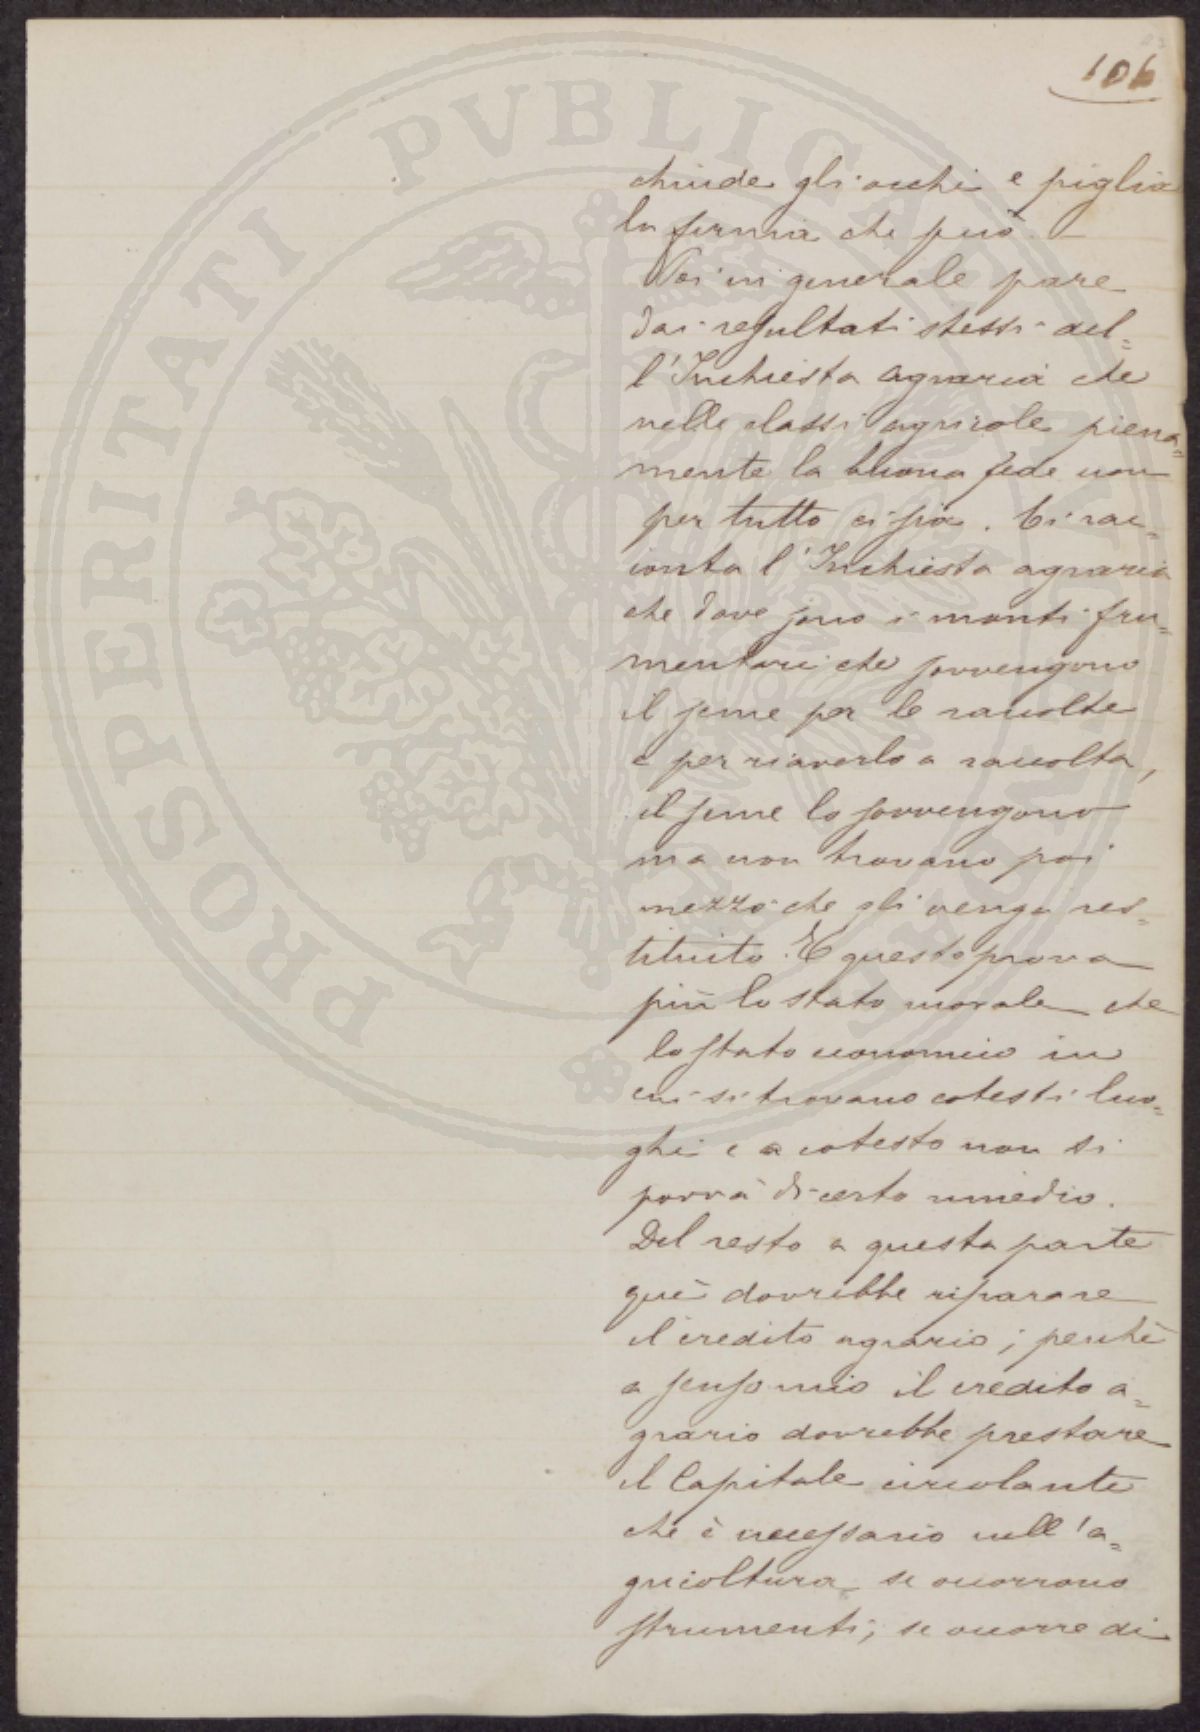 106
chiude gli occhi e piglia
la firma che può. —
Poi in generale pare
dai resultati stessi del=
l'Inchiesta agraria che
nelle classi agricole piena=
mente la buona fede non
per tutto ci sia. Ci rac=
conta l'Inchiesta agraria
che dove sono i monti fru=
mentari che sovvengono
il seme per le raccolte
e per riaverlo a raccolta,
il seme lo sovvengono
ma non trovano poi
mezzo che gli venga res=
tituito. E questo prova
più lo stato morale che
lo stato economico in
cui si trovano cotesti luo=
ghi e a cotesto non si
porrà di certo rimedio.
Del resto a questa parte
quì dovrebbe riparare
il credito agrario; perchè
a senso mio il credito a=
grario dovrebbe prestare
il Capitale circolante
che è necessario nell'a=
gricoltura se occorrono
strumenti; se occorre di
PROSPERITATI PVBLICAE